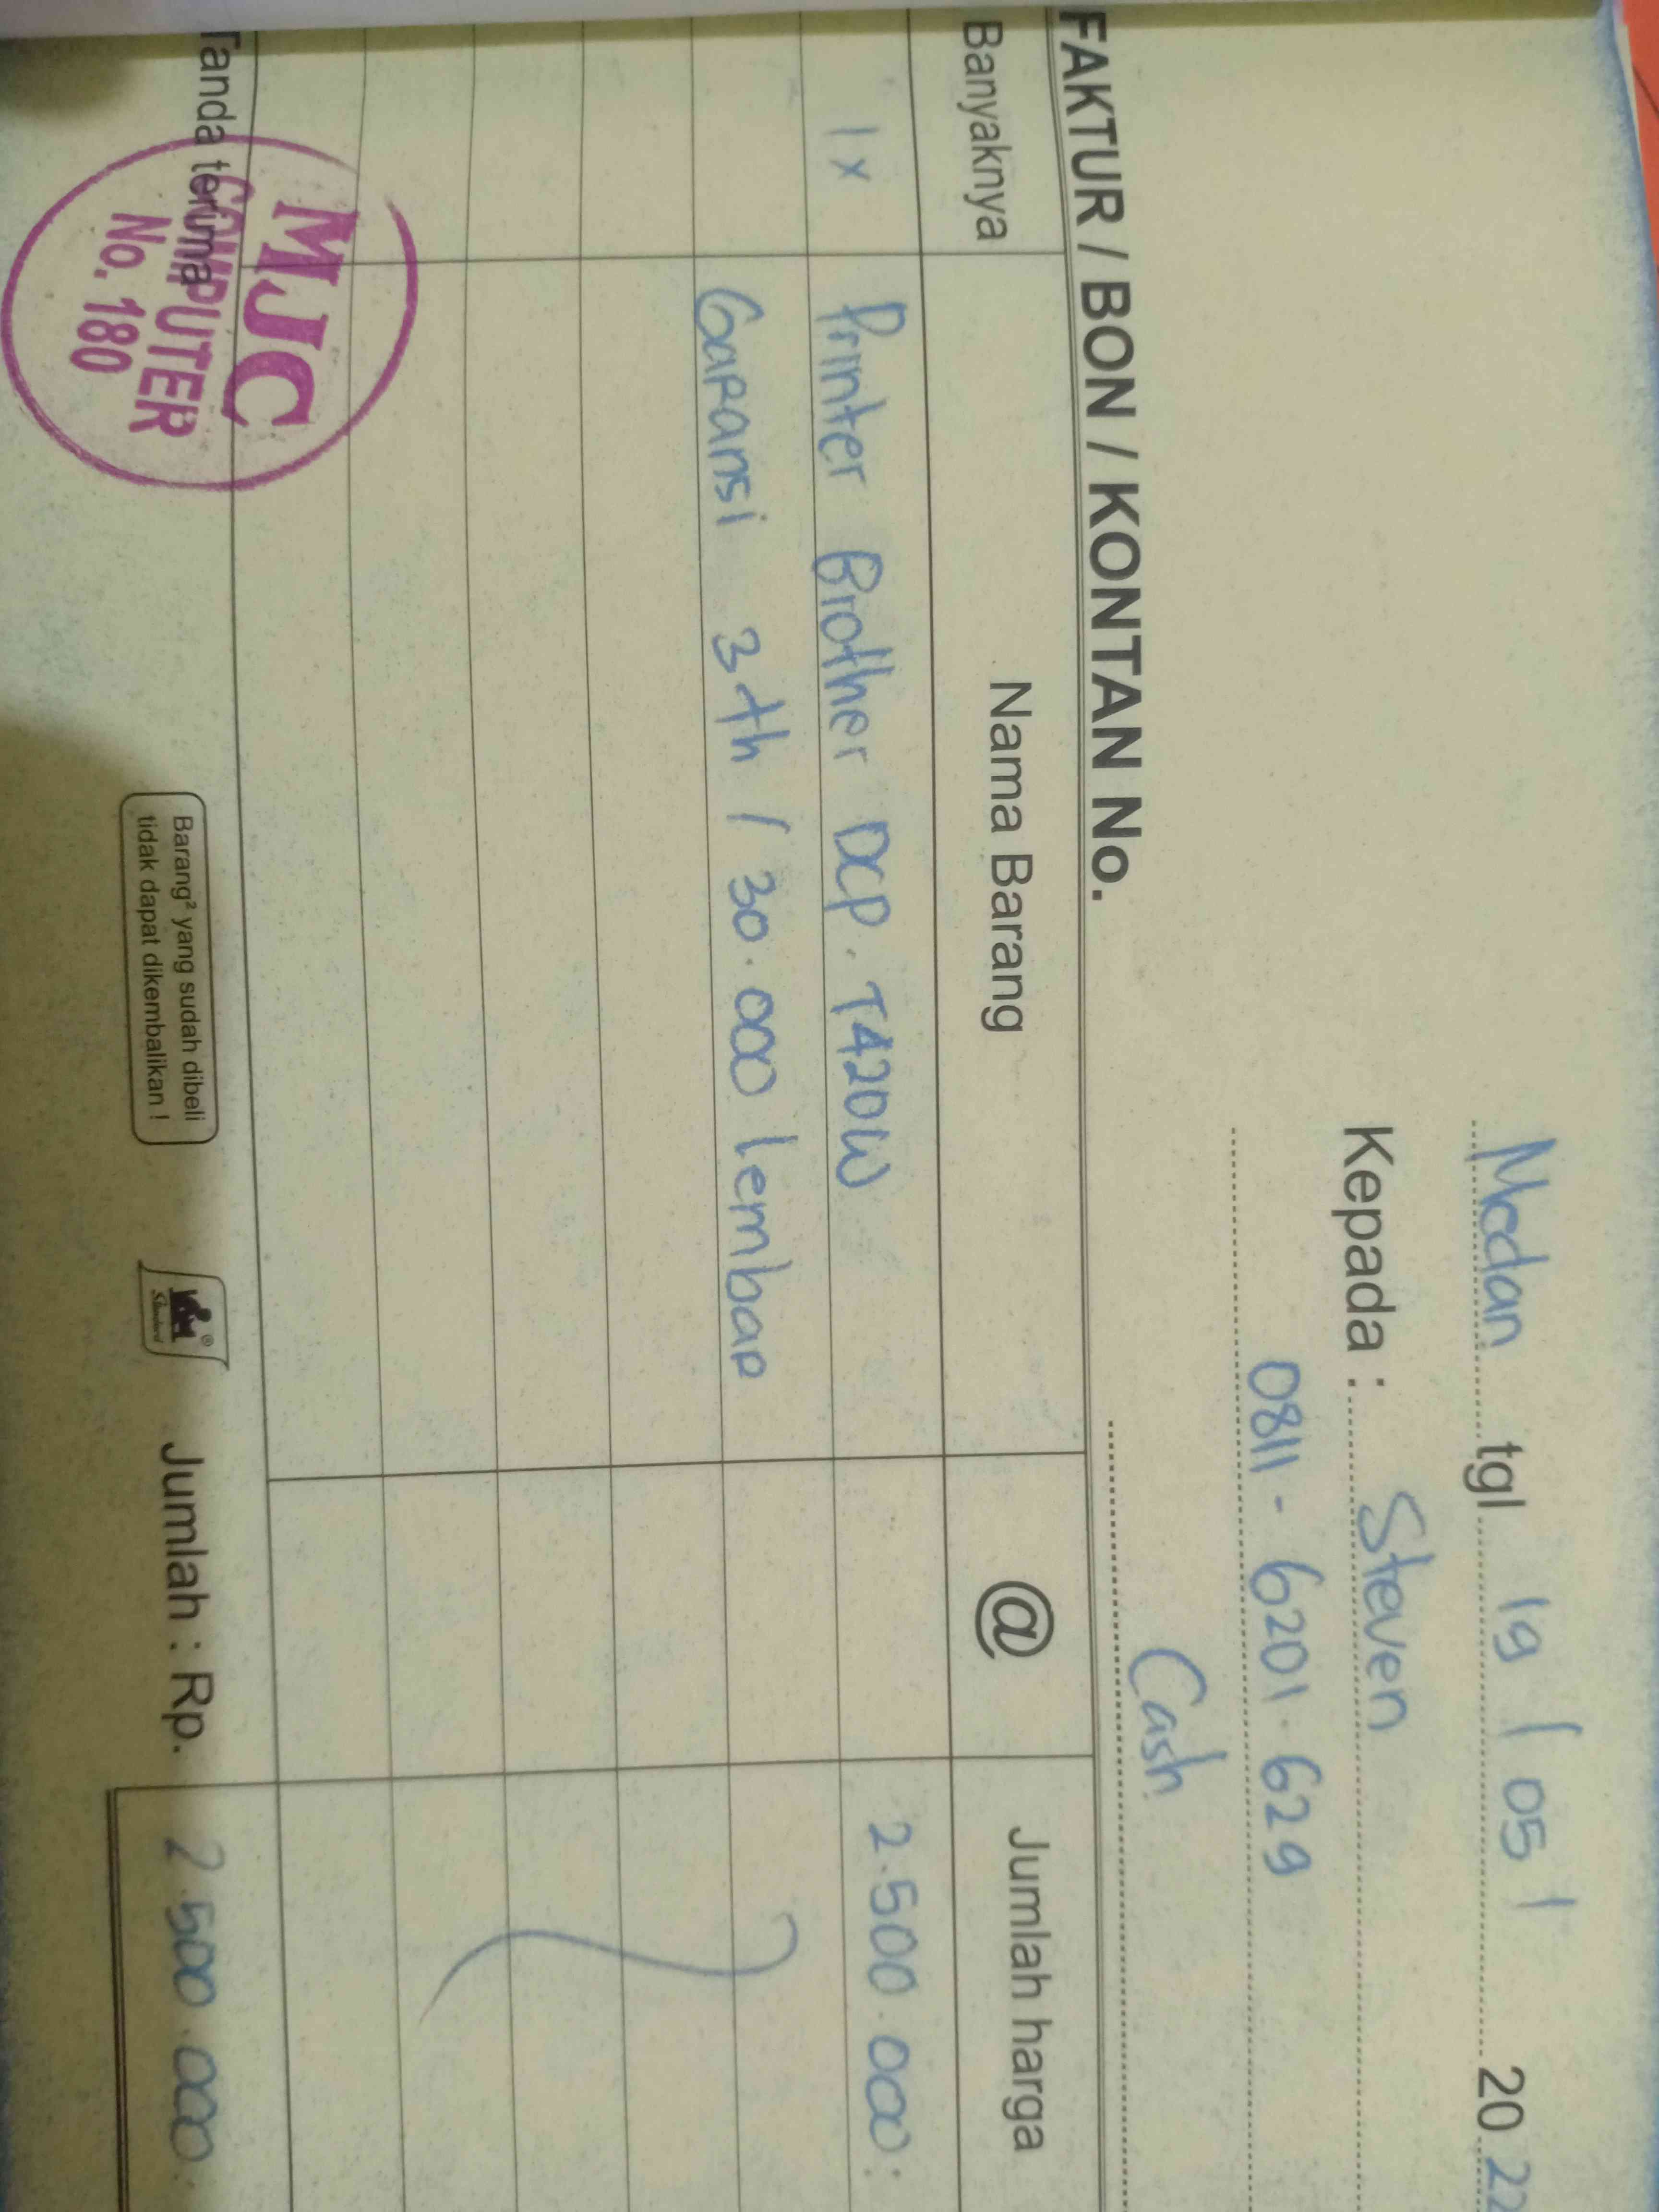 Medan tgl 19 / 05 / 20 22
Kepada : Steven
0811 - 6201 . 629
Cash
FAKTUR / BON / KONTAN No.
Banyaknya Nama Barang @ Jumlah harga
1x Printer Brother DCP . T420W 2.500.000:
Garansi 3 th / 30.000 lembar
Tanda terima
MJC
COMPUTER
No. 180
Barang² yang sudah dibeli
tidak dapat dikembalikan !
Jumlah : Rp. 2.500.000: